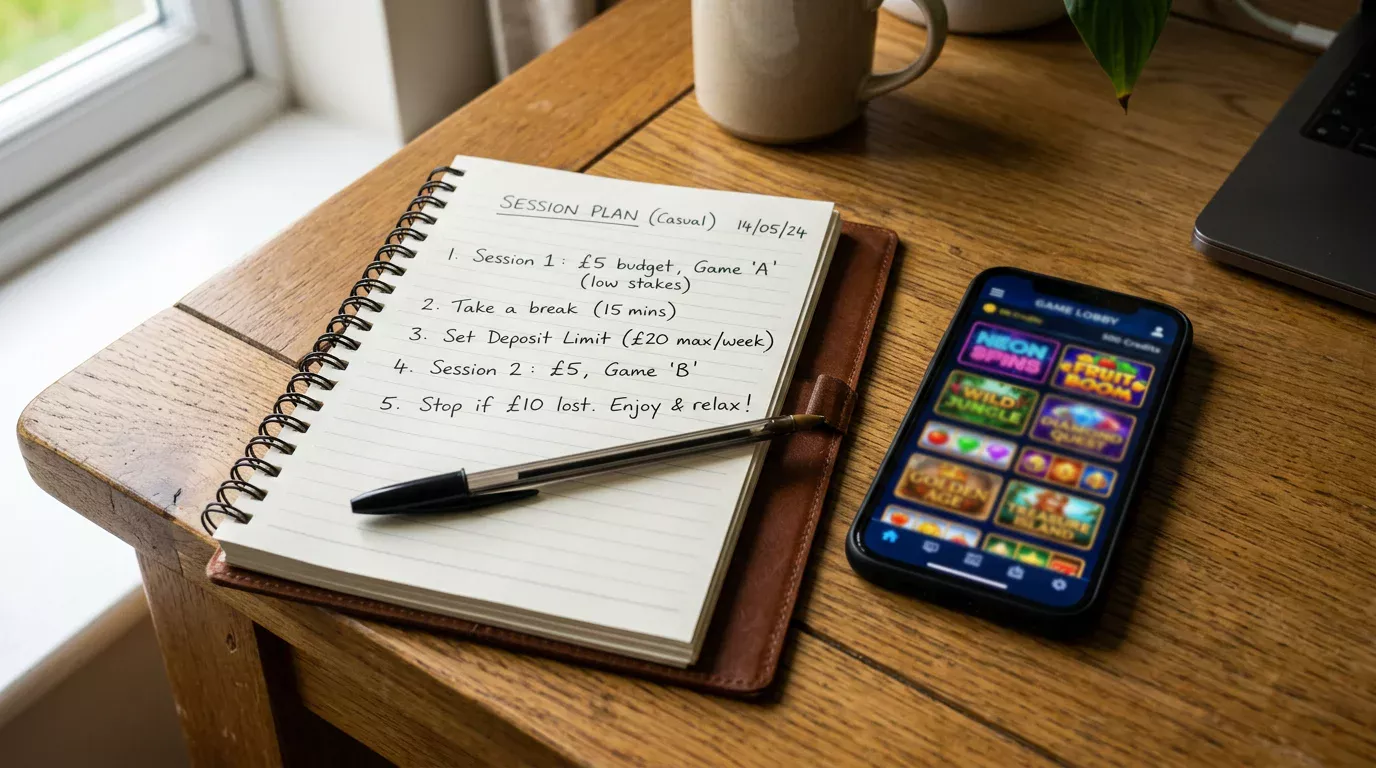 SESSION PLAN (Casual) 14/05/24
1. Session 1 : £5 budget, Game 'A'
(low stakes)
2. Take a break (15 mins)
3. Set Deposit Limit (£20 max/week)
4. Session 2 : £5, Game 'B'
5. Stop if £10 lost. Enjoy & relax!
GAME LOBBY
500 Credits
NEON SPINS
FRUIT BOOM
WILD JUNGLE
DIAMOND QUEST
GOLDEN AGE
TREASURE ISLAND